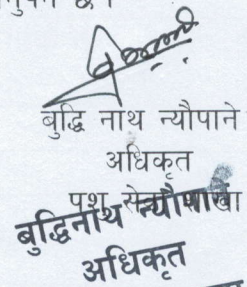 बुद्धि नाथ न्यौपाने
अधिकृत
पशु सेवा शाखा
बुद्धिनाथ न्यौपाने
अधिकृत